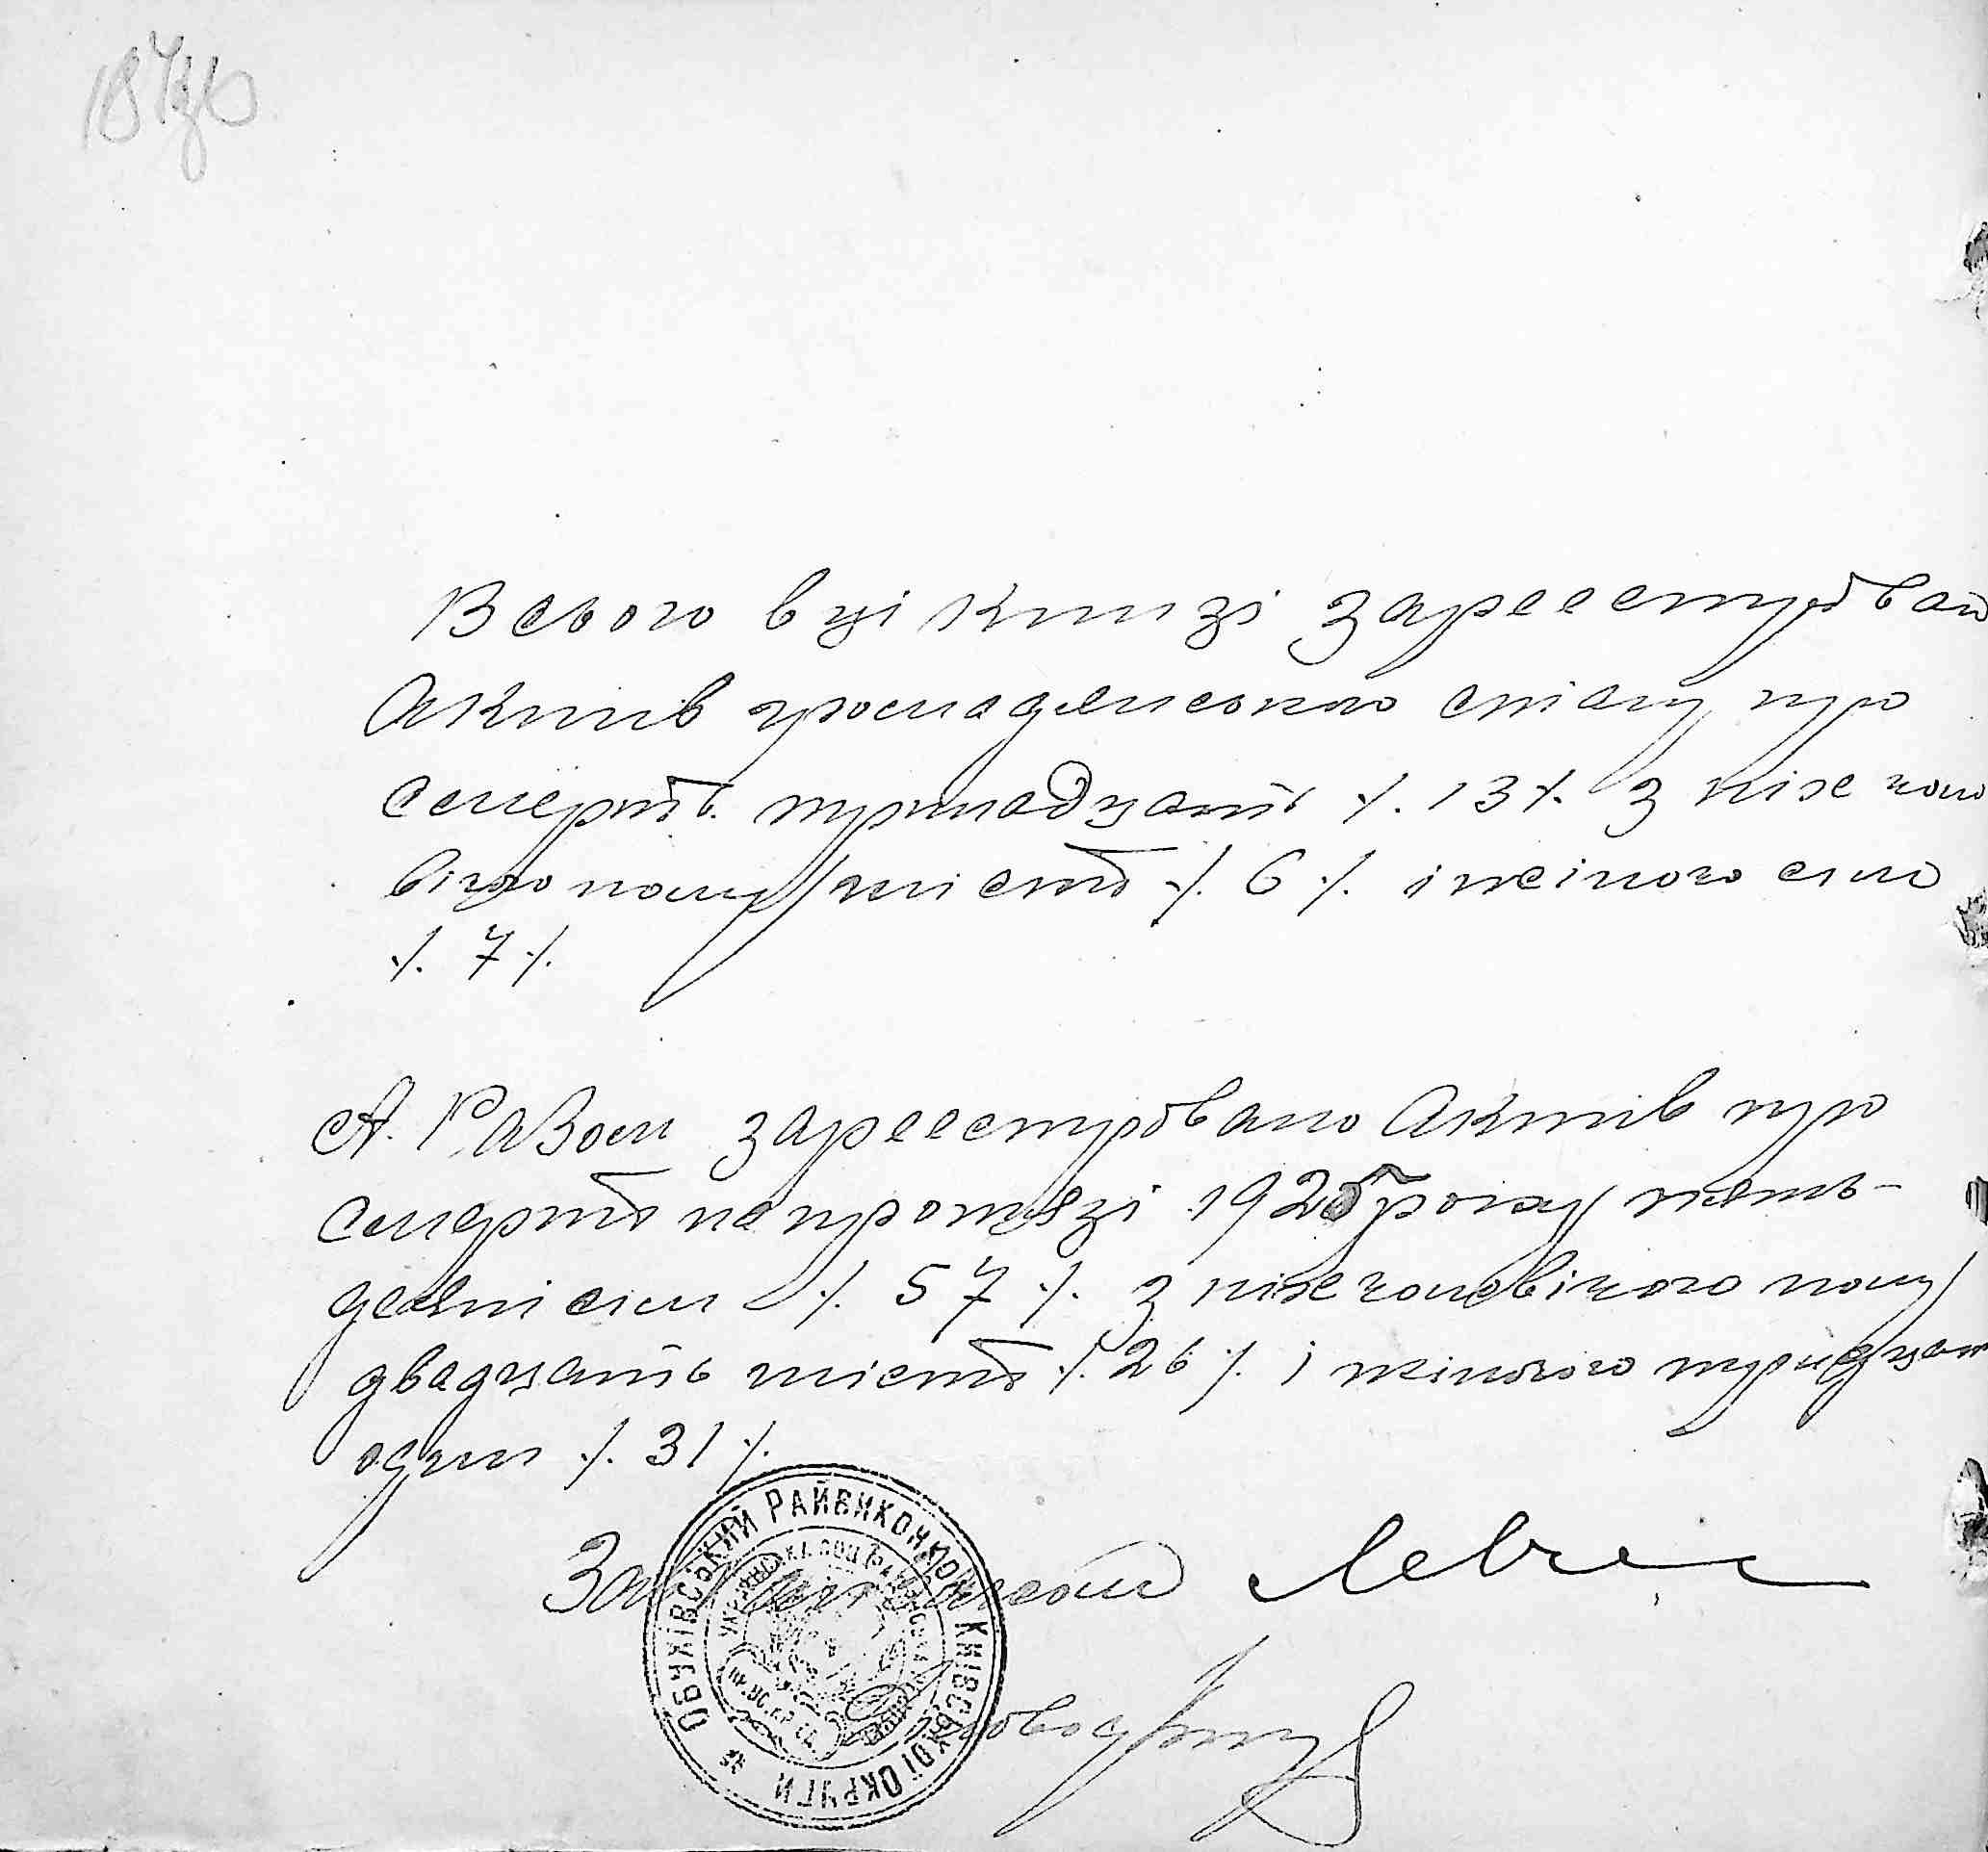 187зв
Всього в ці книзі зареестрован
Актів громадянського стану про
смерть тринадцять ./. 13 ./. з ніх чоло
вічого полу шість ./. 6 ./. і жіночого сім
./. 7 ./.
А. Разом зареестровано Актів про
смерть на протязі 1925 року пять-
десят сім ./. 57 ./. з ніх чоловічого полу
двадцять шість ./. 26 ./. і жіночого тридцят
один ./. 31 ./.
Зав
Діловод
ОБУХІВСЬКИЙ РАЙВИКОНКОМ КИЇВСЬКОЇ ОКРУГИ